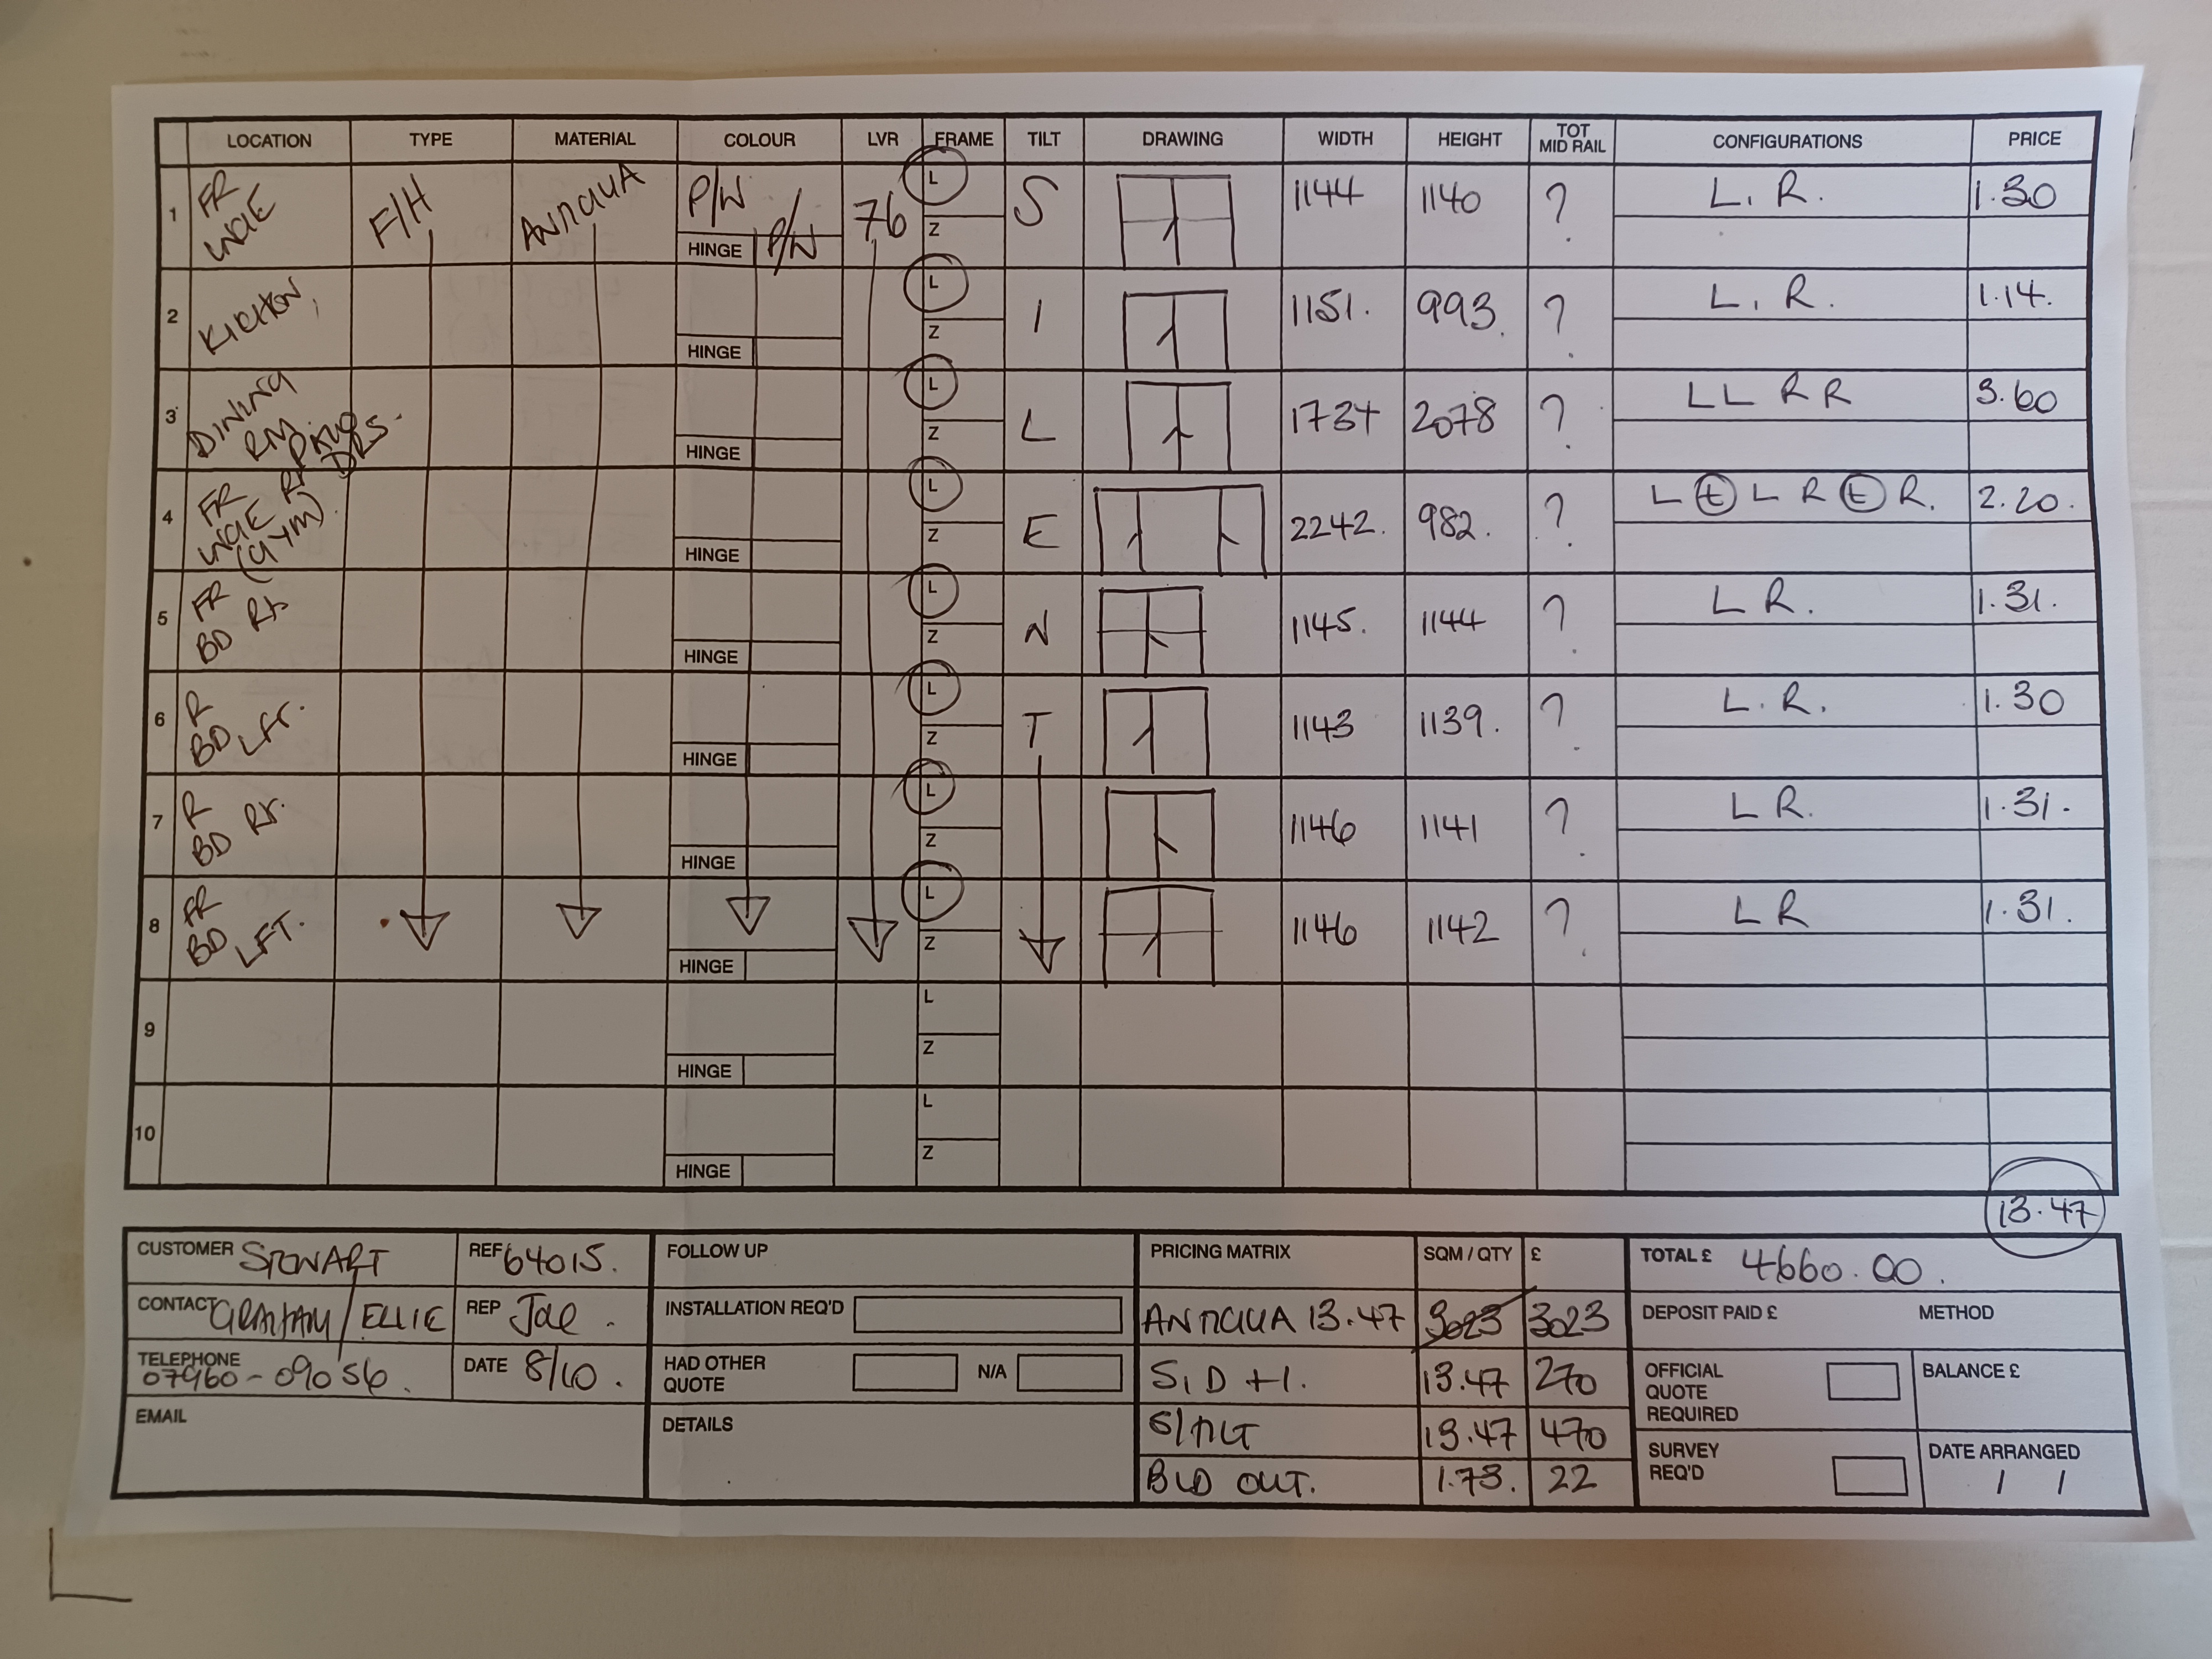 LOCATION TYPE MATERIAL COLOUR LVR FRAME TILT DRAWING WIDTH HEIGHT TOT MID RAIL CONFIGURATIONS PRICE
1 FR F/H ANTIGUA P/W HINGE P/W 76 L Z S 1144 1140 ? L. R. 1.30
2 KITCHEN, HINGE L Z I 1151. 993. ? L. R. 1.14.
3 DINING RM. DRS. HINGE L Z L 1734 2078 ? L L R R 3.60
4 FR (GYM) HINGE L Z E 2242. 982. ? L t L R t R. 2.20.
5 FR BD Rt. HINGE L Z N 1145. 1144 ? L R. 1.31.
6 R BD LFT. HINGE L Z T 1143 1139. ? L. R. 1.30
7 R BD Rt. HINGE L Z 1146 1141 ? L R. 1.31.
8 FR BD LFT. HINGE L Z 1146 1142 ? L R 1.31.
9 HINGE L Z
10 HINGE L Z
13.47
CUSTOMER STEWART REF 64015.
CONTACT GRAHAM / ELLIE REP Joe.
TELEPHONE 07960-09056. DATE 8/10.
EMAIL
FOLLOW UP
INSTALLATION REQ'D
HAD OTHER QUOTE N/A
DETAILS
PRICING MATRIX SQM / QTY £
ANTIGUA 13.47 3023 3023
S, D +1. 13.47 270
S/TILT 13.47 470
BLD OUT. 1.73. 22
TOTAL £ 4660.00.
DEPOSIT PAID £ METHOD
OFFICIAL QUOTE REQUIRED BALANCE £
SURVEY REQ'D DATE ARRANGED
/ /